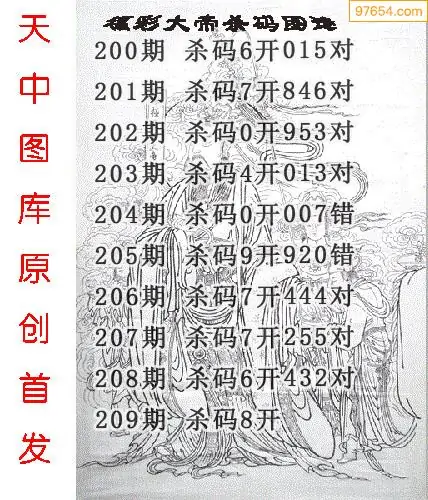 97654.com
福彩大帝杀码图谜
200期 杀码6开015对
201期 杀码7开846对
202期 杀码0开953对
203期 杀码4开013对
204期 杀码0开007错
205期 杀码9开920错
206期 杀码7开444对
207期 杀码7开255对
208期 杀码6开432对
209期 杀码8开
天中图库原创首发